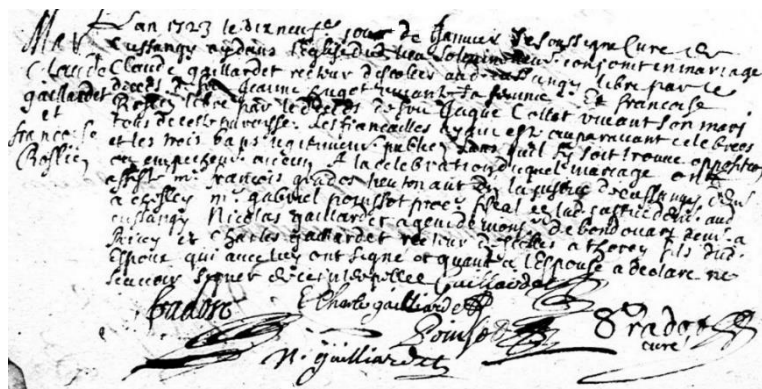 Lan 1723 le dixneufe jour de Janvier Je soussigne Curé de
Mar Cussangy ay dans leglise dud lieu solennellement conjoint en mariage
Claude Claude gaillardet recteur descoles aud Cussangy libre par le
gaillardet deceds de feu Jeanne huget vivant sa femme Et francoise
et Rossien libre par le deceds de feu Jaque Collot vivant son mari
francoise tous de cette paroisse. Les fiancailles ayant esté auparavant celebrees
Rossien et les trois bans legitimement publiez sans quil sy soit trouvé opposition
ou empechement aucun A la celebration duquel mariage ont
assisté mr francois lieutenant en la justice de cussangy demt
a mr gabriel poussot procr fiscal en lad justice demt aud
cussangy Nicolas gaillardet agent de monsr de demt a
et Charles gaillardet recteur descoles a fils dud
Espoux qui avec luy ont signé et quant a lespouse a declaré ne
scavoir signer de ce interpellee Gaillardet
E Charle gaillardet
Pousot
N. gailliardet
curé